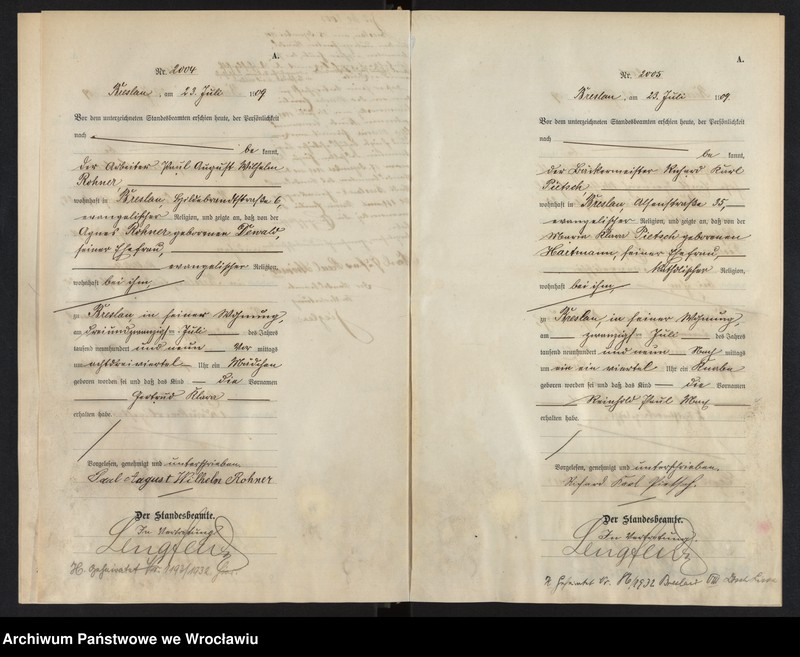 A.
Nr. 2004
Breslau, am 23. Juli 1909
Vor dem unterzeichneten Standesbeamten erschien heute, der Persönlichkeit
nach
be kannt,
der Arbeiter Paul August Wilhelm
Rohner,
wohnhaft in Breslau, Hildebrandtstraße 6,
evangelischer Religion, und zeigte an, daß von der
Agnes Rohner geborenen Dewald,
seiner Ehefrau,
evangelischer Religion,
wohnhaft bei ihm,
zu Breslau, in seiner Wohnung,
am dreiundzwanzigsten Juli des Jahres
tausend neunhundert und neun Vor mittags
um achtdreiviertel Uhr ein Mädchen
geboren worden sei und daß das Kind die Vornamen
Gertrud Klara
erhalten habe.
Vorgelesen, genehmigt und unterschrieben.
Paul August Wilhelm Rohner
Der Standesbeamte.
In Vertretung
H. Geheiratet
A.
Nr. 2005
Breslau, am 23. Juli 1909.
Vor dem unterzeichneten Standesbeamten erschien heute, der Persönlichkeit
nach
be kannt,
der Bäckermeister Richard Karl
Pietsch,
wohnhaft in Breslau, Alsenstraße 35,
evangelischer Religion, und zeigte an, daß von der
Maria Klara Pietsch geborenen
Hartmann, seiner Ehefrau,
katholischer Religion,
wohnhaft bei ihm,
zu Breslau, in seiner Wohnung,
am zwanzigsten Juli des Jahres
tausend neunhundert und neun Nach mittags
um ein ein viertel Uhr ein Knabe
geboren worden sei und daß das Kind die Vornamen
Reinhold Paul Max
erhalten habe.
Vorgelesen, genehmigt und unterschrieben.
Richard Karl Pietsch.
Der Standesbeamte.
In Vertretung.
1932 Breslau VIII
Archiwum Państwowe we Wrocławiu